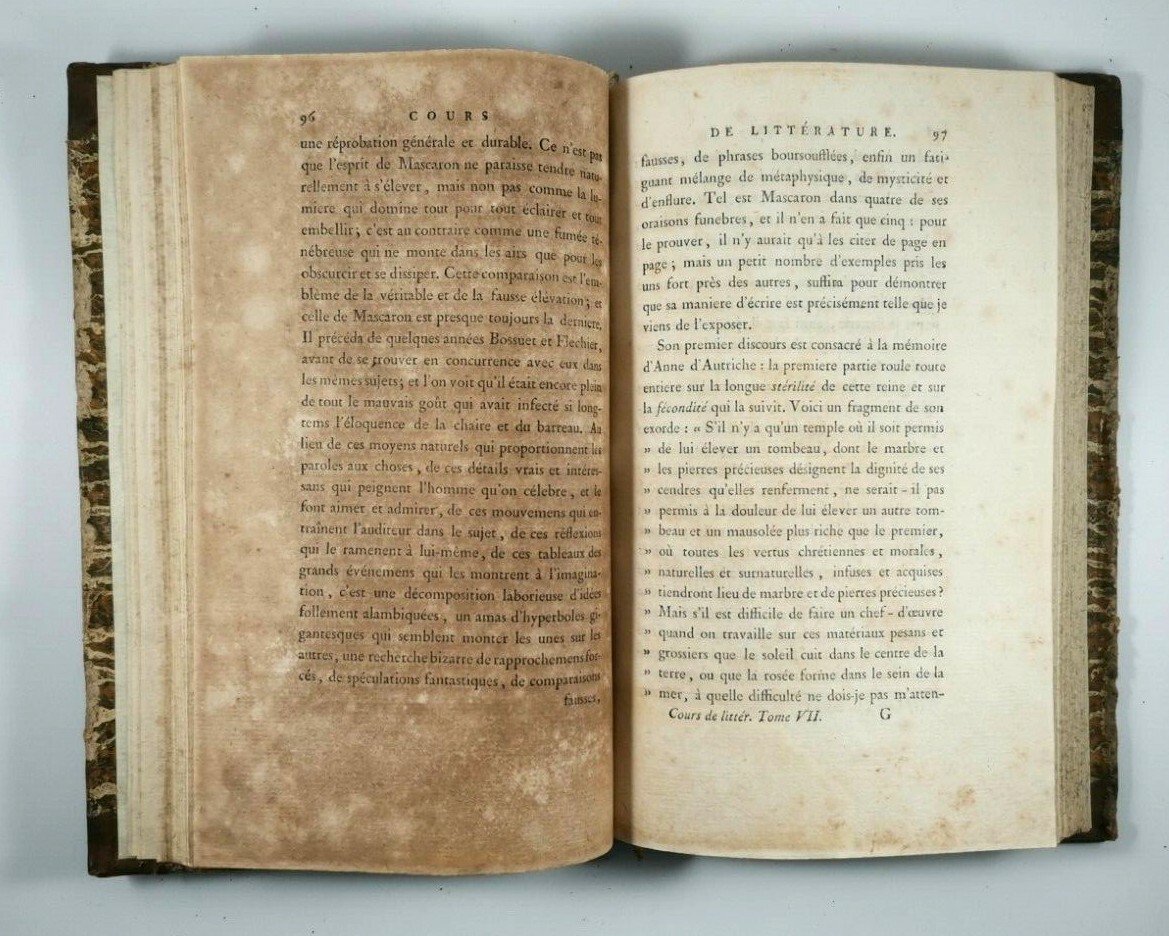 96 COURS
une réprobation générale et durable. Ce n'est pas
que l'esprit de Mascaron ne paraisse tendre natu-
rellement à s'élever, mais non pas comme la lu-
miere qui domine tout pour tout éclairer et tout
embellir; c'est au contraire comme une fumée té-
nébreuse qui ne monte dans les airs que pour les
obscurcir et se dissiper. Cette comparaison est l'em-
blême de la véritable et de la fausse élévation; et
celle de Mascaron est presque toujours la derniere.
Il précéda de quelques années Bossuet et Flechier,
avant de se trouver en concurrence avec eux dans
les mêmes sujets; et l'on voit qu'il était encore plein
de tout le mauvais goût qui avait infecté si long-
tems l'éloquence de la chaire et du barreau. Au
lieu de ces moyens naturels qui proportionnent les
paroles aux choses, de ces détails vrais et intéres-
sans qui peignent l'homme qu'on célebre, et le
font aimer et admirer, de ces mouvemens qui en-
traînent l'auditeur dans le sujet, de ces réflexions
qui le ramenent à lui-même, de ces tableaux des
grands événemens qui les montrent à l'imagina-
tion, c'est une décomposition laborieuse d'idées
follement alambiquées, un amas d'hyperboles gi-
gantesques qui semblent monter les unes sur les
autres, une recherche bizarre de rapprochemens for-
cés, de spéculations fantastiques, de comparaisons
fausses,
DE LITTÉRATURE. 97
fausses, de phrases boursoufflées, enfin un fati-
guant mélange de métaphysique, de mysticité et
d'enflure. Tel est Mascaron dans quatre de ses
oraisons funebres, et il n'en a fait que cinq : pour
le prouver, il n'y aurait qu'à les citer de page en
page; mais un petit nombre d'exemples pris les
uns fort près des autres, suffira pour démontrer
que sa maniere d'écrire est précisément telle que je
viens de l'exposer.
Son premier discours est consacré à la mémoire
d'Anne d'Autriche : la premiere partie roule toute
entiere sur la longue stérilité de cette reine et sur
la fécondité qui la suivit. Voici un fragment de son
exorde : « S'il n'y a qu'un temple où il soit permis
» de lui élever un tombeau, dont le marbre et
» les pierres précieuses désignent la dignité de ses
» cendres qu'elles renferment, ne serait-il pas
» permis à la douleur de lui élever un autre tom-
» beau et un mausolée plus riche que le premier,
» où toutes les vertus chrétiennes et morales,
» naturelles et surnaturelles, infuses et acquises
» tiendront lieu de marbre et de pierres précieuses ?
» Mais s'il est difficile de faire un chef-d'œuvre
» quand on travaille sur ces matériaux pesans et
» grossiers que le soleil cuit dans le centre de la
» terre, ou que la rosée forme dans le sein de la
» mer, à quelle difficulté ne dois-je pas m'atten-
Cours de littér. Tome VII. G